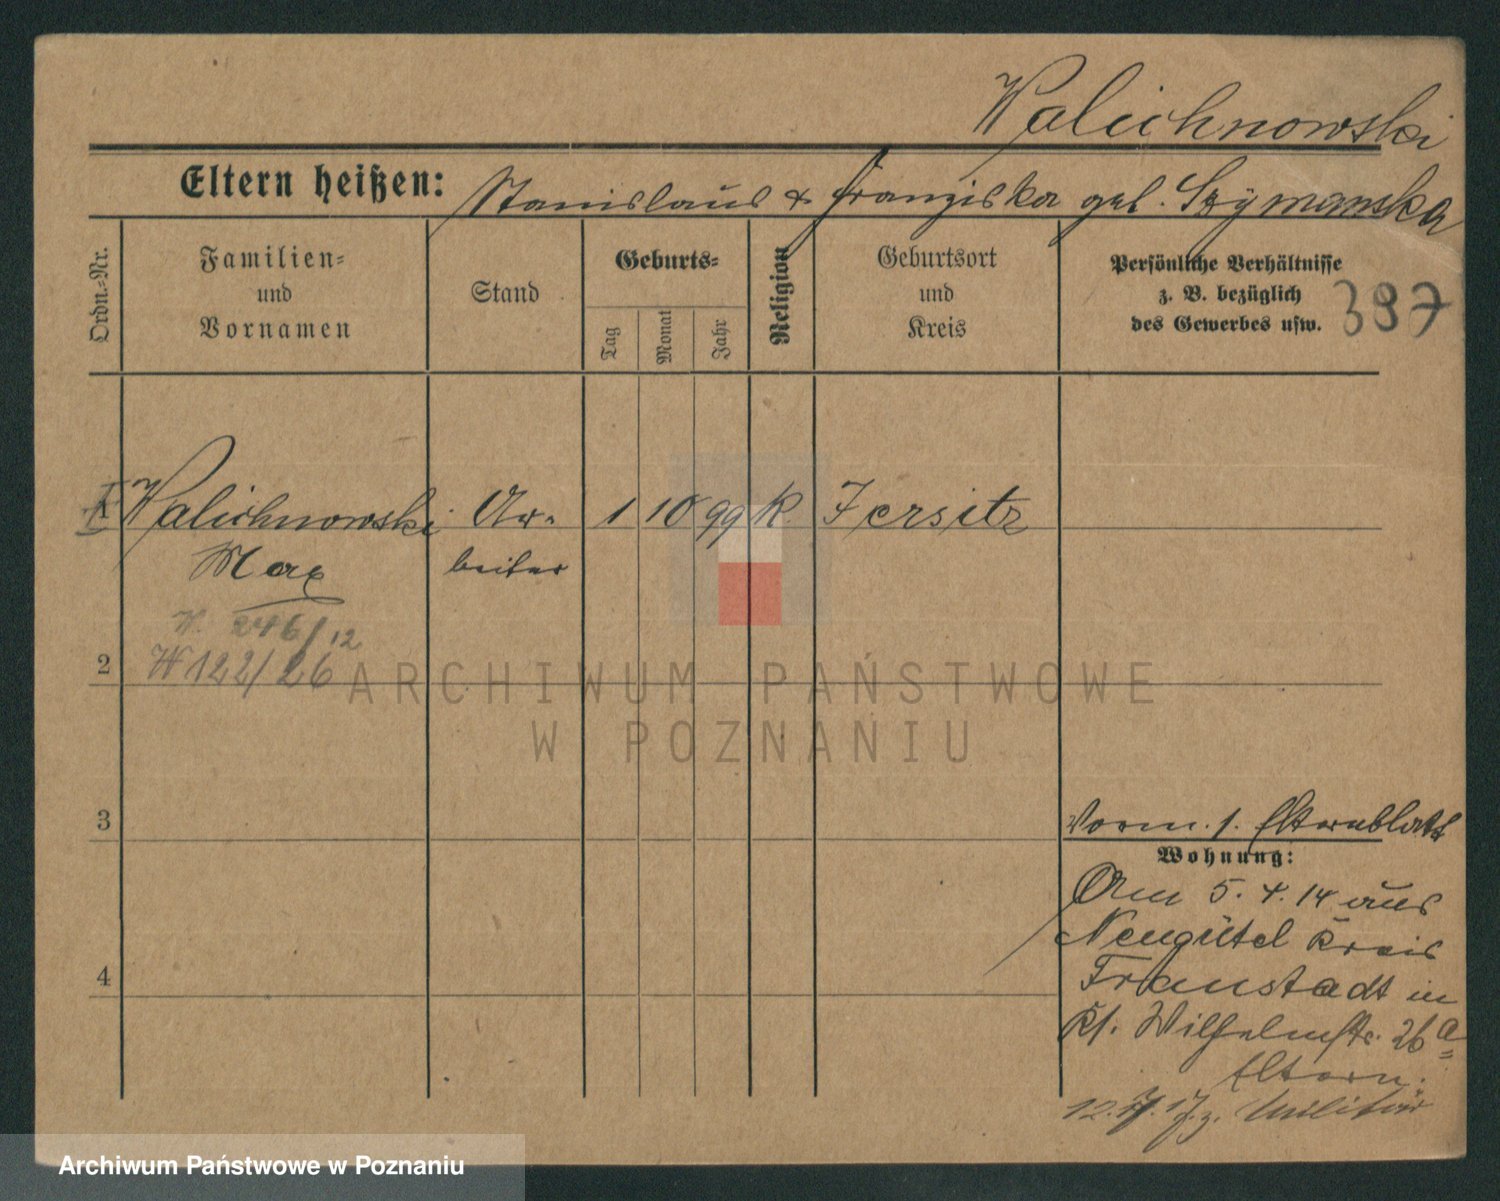 Walichnowski
Eltern heißen: Stanislaus & Franziska geb. Szymanska
Ordn.-Nr.
Familien-
und
Vornamen
Stand
Geburts-
Tag
Monat
Jahr
Religion
Geburtsort
und
Kreis
Persönliche Verhältnisse
z. B. bezüglich
des Gewerbes usw.
397
Walichnowski Ar- 1 10 99 K. Jersitz
Max beiter
W. 246/12
2 W 122/26
ARCHIWUM PAŃSTWOWE
W POZNANIU
3
Vorm. 1. Elternblatt
Wohnung:
Am 5. 4. 14 aus
Neugütel Kreis
4
Fraustadt in
Kl. Wilhelmstr. 26a
Eltern.
z. Militär
Archiwum Państwowe w Poznaniu